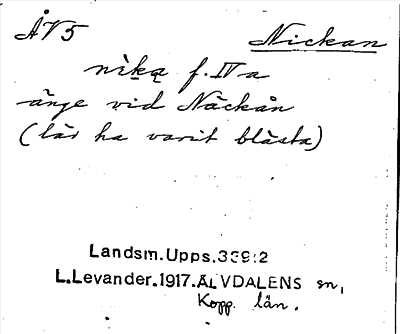 ÅV5 Nickan
nìką f. IV a
änge vid Näckån
(lär ha varit blästa)
Landsm. Upps. 339:2
L. Levander. 1917. ÄLVDALENS sn,
Kopp. län.